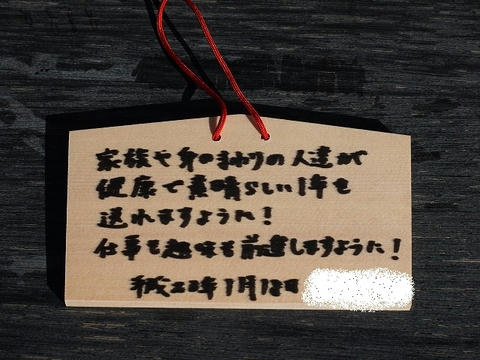 家族や身のまわりの人達が
健康で素晴らしい1年を
送れますように!
仕事も趣味も前進しますように!
平成23年1月13日